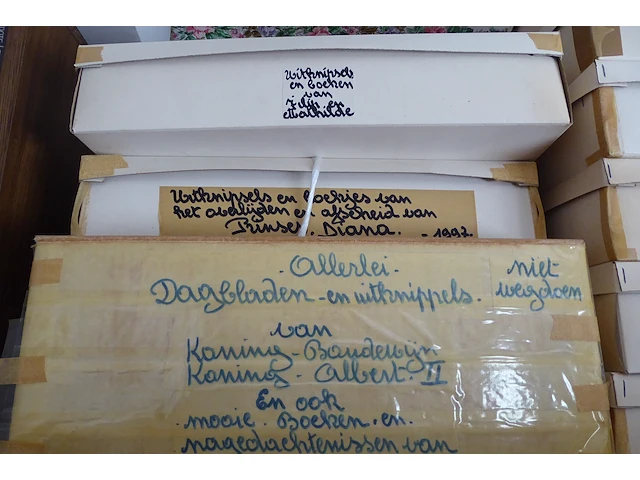 Uitknipsels
en boeken
van
Filip en
Mathilde
Uitknipsels en boekjes van
het overlijden en afscheid van
Prinses. Diana. - 1997
- Allerlei -
niet
wegdoen
Dagbladen - en uitknippels.
van
Koning - Boudewijn
Koning - Albert. II
En ook
mooie. Boeken. en.
nagedachtenissen van